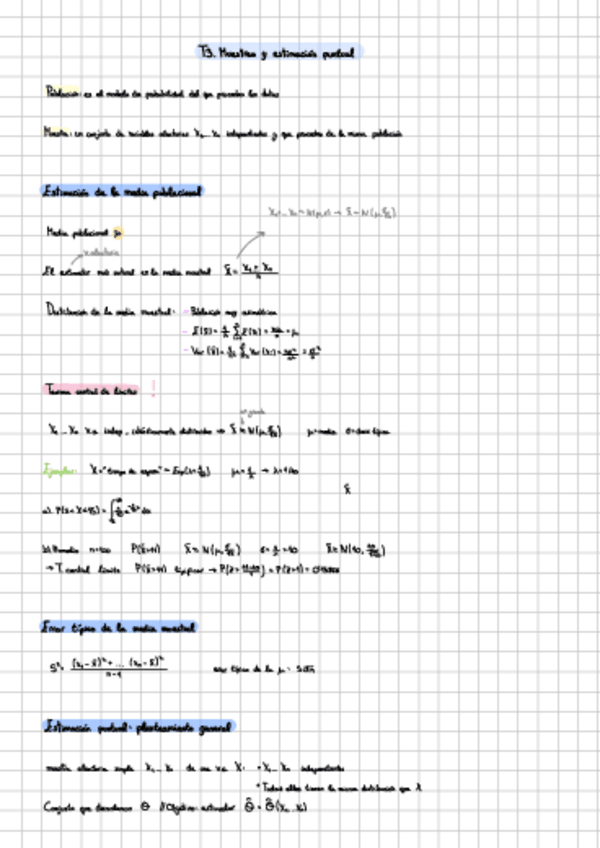 T3. Muestra y estimación puntual
Población: es el modelo de probabilidad del que proceden los datos
Muestra: un conjunto de variables aleatorias X₁... Xₙ independientes y que proceden de la misma población
Estimación de la media poblacional
X₁... Xₙ ~ N(μ,σ) → X̄ ~ N(μ, σ/√n)
Media poblacional μ
v. aleatoria
El estimador más natural es la media muestral X̄ = (X₁ + ... Xₙ)/n
Distribución de la media muestral: - Población muy asimétrica
- E(X̄) = 1/n Σ E(Xi) = nμ/n = μ
- Var (X̄) = 1/n² Σ Var (Xi) = nσ²/n² = σ²/n
Teorema central del límite !
n grande
X₁... Xₙ v.a indep, idénticamente distribuidas → X̄ ≈ N(μ, σ/√n) μ=media σ=desv típica
Ejemplo: X="tiempo de espera" ~ Exp(λ=1/10) μ=1/λ → λ=1/10
X̄
b) P(X̄>11) X̄ ≈ N(μ, σ/√n) σ=1/λ=10
→ T. central límite P(X̄>11) tipificar
Error típico de la media muestral
S² = ((X₁-X̄)²+ ... (Xₙ-X̄)²)/(n-1) error típico de la μ = S/√n
Estimación puntual: planteamiento general
muestra aleatoria simple X₁... Xₙ de una v.a X: • X₁... Xₙ independientes
• Todas ellas tienen la misma distribución que X
Θ Objetivo: estimador Θ̂ = Θ̂(X₁... Xₙ)